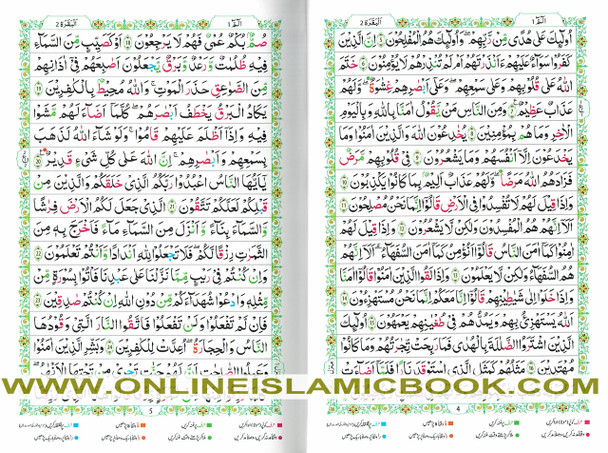 الٓمّٓ ١ اَلْبَقَرَة ٢
اُولٰٓئِكَ عَلٰى هُدًى مِّنْ رَّبِّهِمْ ۙ وَاُولٰٓئِكَ هُمُ الْمُفْلِحُوْنَ ٥ اِنَّ الَّذِيْنَ
كَفَرُوْا سَوَآءٌ عَلَيْهِمْ ءَاَنْذَرْتَهُمْ اَمْ لَمْ تُنْذِرْهُمْ لَا يُؤْمِنُوْنَ ٦ خَتَمَ
اللّٰهُ عَلٰى قُلُوْبِهِمْ وَعَلٰى سَمْعِهِمْ ۭ وَعَلٰٓى اَبْصَارِهِمْ غِشَاوَةٌ ۡ وَّلَهُمْ
عَذَابٌ عَظِيْمٌ ٧ وَمِنَ النَّاسِ مَنْ يَّقُوْلُ اٰمَنَّا بِاللّٰهِ وَبِالْيَوْمِ
الْاٰخِرِ وَمَا هُمْ بِمُؤْمِنِيْنَ ٨ يُخٰدِعُوْنَ اللّٰهَ وَالَّذِيْنَ اٰمَنُوْا وَمَا
يَخْدَعُوْنَ اِلَّآ اَنْفُسَهُمْ وَمَا يَشْعُرُوْنَ ٩ فِيْ قُلُوْبِهِمْ مَّرَضٌ
فَزَادَهُمُ اللّٰهُ مَرَضًا ۚ وَلَهُمْ عَذَابٌ اَلِيْمٌ بِمَا كَانُوْا يَكْذِبُوْنَ ١٠
وَاِذَا قِيْلَ لَهُمْ لَا تُفْسِدُوْا فِى الْاَرْضِ قَالُوْٓا اِنَّمَا نَحْنُ مُصْلِحُوْنَ ١١
اَلَآ اِنَّهُمْ هُمُ الْمُفْسِدُوْنَ وَلٰكِنْ لَّا يَشْعُرُوْنَ ١٢ وَاِذَا قِيْلَ لَهُمْ
اٰمِنُوْا كَمَآ اٰمَنَ النَّاسُ قَالُوْٓا اَنُؤْمِنُ كَمَآ اٰمَنَ السُّفَهَآءُ ۭ اَلَآ اِنَّهُمْ
هُمُ السُّفَهَآءُ وَلٰكِنْ لَّا يَعْلَمُوْنَ ١٣ وَاِذَا لَقُوا الَّذِيْنَ اٰمَنُوْا قَالُوْٓا اٰمَنَّا
وَاِذَا خَلَوْا اِلٰى شَيٰطِيْنِهِمْ قَالُوْٓا اِنَّا مَعَكُمْ اِنَّمَا نَحْنُ مُسْتَهْزِءُوْنَ ١٤
اَللّٰهُ يَسْتَهْزِئُ بِهِمْ وَيَمُدُّهُمْ فِيْ طُغْيَانِهِمْ يَعْمَهُوْنَ ١٥ اُولٰٓئِكَ
الَّذِيْنَ اشْتَرَوُا الضَّلٰلَةَ بِالْهُدٰى فَمَا رَبِحَتْ تِّجَارَتُهُمْ وَمَا كَانُوْا
مُهْتَدِيْنَ ١٦ مَثَلُهُمْ كَمَثَلِ الَّذِى اسْتَوْقَدَ نَارًا ۚ فَلَمَّآ اَضَآءَتْ
4
الٓمّٓ ١ اَلْبَقَرَة ٢
صُمٌّۢ بُكْمٌ عُمْيٌ فَهُمْ لَا يَرْجِعُوْنَ ١٨ اَوْ كَصَيِّبٍ مِّنَ السَّمَآءِ
فِيْهِ ظُلُمٰتٌ وَّرَعْدٌ وَّبَرْقٌ يَجْعَلُوْنَ اَصَابِعَهُمْ فِيْٓ اٰذَانِهِمْ
مِّنَ الصَّوَاعِقِ حَذَرَ الْمَوْتِ ۭ وَاللّٰهُ مُحِيْطٌۢ بِالْكٰفِرِيْنَ ١٩
يَكَادُ الْبَرْقُ يَخْطَفُ اَبْصَارَهُمْ ۭ كُلَّمَآ اَضَآءَ لَهُمْ مَّشَوْا
فِيْهِ وَاِذَآ اَظْلَمَ عَلَيْهِمْ قَامُوْا ۭ وَلَوْ شَآءَ اللّٰهُ لَذَهَبَ
بِسَمْعِهِمْ وَاَبْصَارِهِمْ ۭ اِنَّ اللّٰهَ عَلٰى كُلِّ شَيْءٍ قَدِيْرٌ ٢٠
يٰٓاَيُّهَا النَّاسُ اعْبُدُوْا رَبَّكُمُ الَّذِيْ خَلَقَكُمْ وَالَّذِيْنَ مِنْ
قَبْلِكُمْ لَعَلَّكُمْ تَتَّقُوْنَ ٢١ الَّذِيْ جَعَلَ لَكُمُ الْاَرْضَ فِرَاشًا
وَّالسَّمَآءَ بِنَآءً ۠ وَّاَنْزَلَ مِنَ السَّمَآءِ مَآءً فَاَخْرَجَ بِهٖ مِنَ
الثَّمَرٰتِ رِزْقًا لَّكُمْ ۚ فَلَا تَجْعَلُوْا لِلّٰهِ اَنْدَادًا وَّاَنْتُمْ تَعْلَمُوْنَ ٢٢
وَاِنْ كُنْتُمْ فِيْ رَيْبٍ مِّمَّا نَزَّلْنَا عَلٰى عَبْدِنَا فَاْتُوْا بِسُوْرَةٍ مِّنْ
مِّثْلِهٖ ۠ وَادْعُوْا شُهَدَآءَكُمْ مِّنْ دُوْنِ اللّٰهِ اِنْ كُنْتُمْ صٰدِقِيْنَ ٢٣
فَاِنْ لَّمْ تَفْعَلُوْا وَلَنْ تَفْعَلُوْا فَاتَّقُوا النَّارَ الَّتِيْ وَقُوْدُهَا
النَّاسُ وَالْحِجَارَةُ ښ اُعِدَّتْ لِلْكٰفِرِيْنَ ٢٤ وَبَشِّرِ الَّذِيْنَ اٰمَنُوْا
وَعَمِلُوا الصّٰلِحٰتِ اَنَّ لَهُمْ جَنّٰتٍ تَجْرِيْ مِنْ تَحْتِهَا الْاَنْهٰرُ
5
WWW.ONLINEISLAMICBOOK.COM